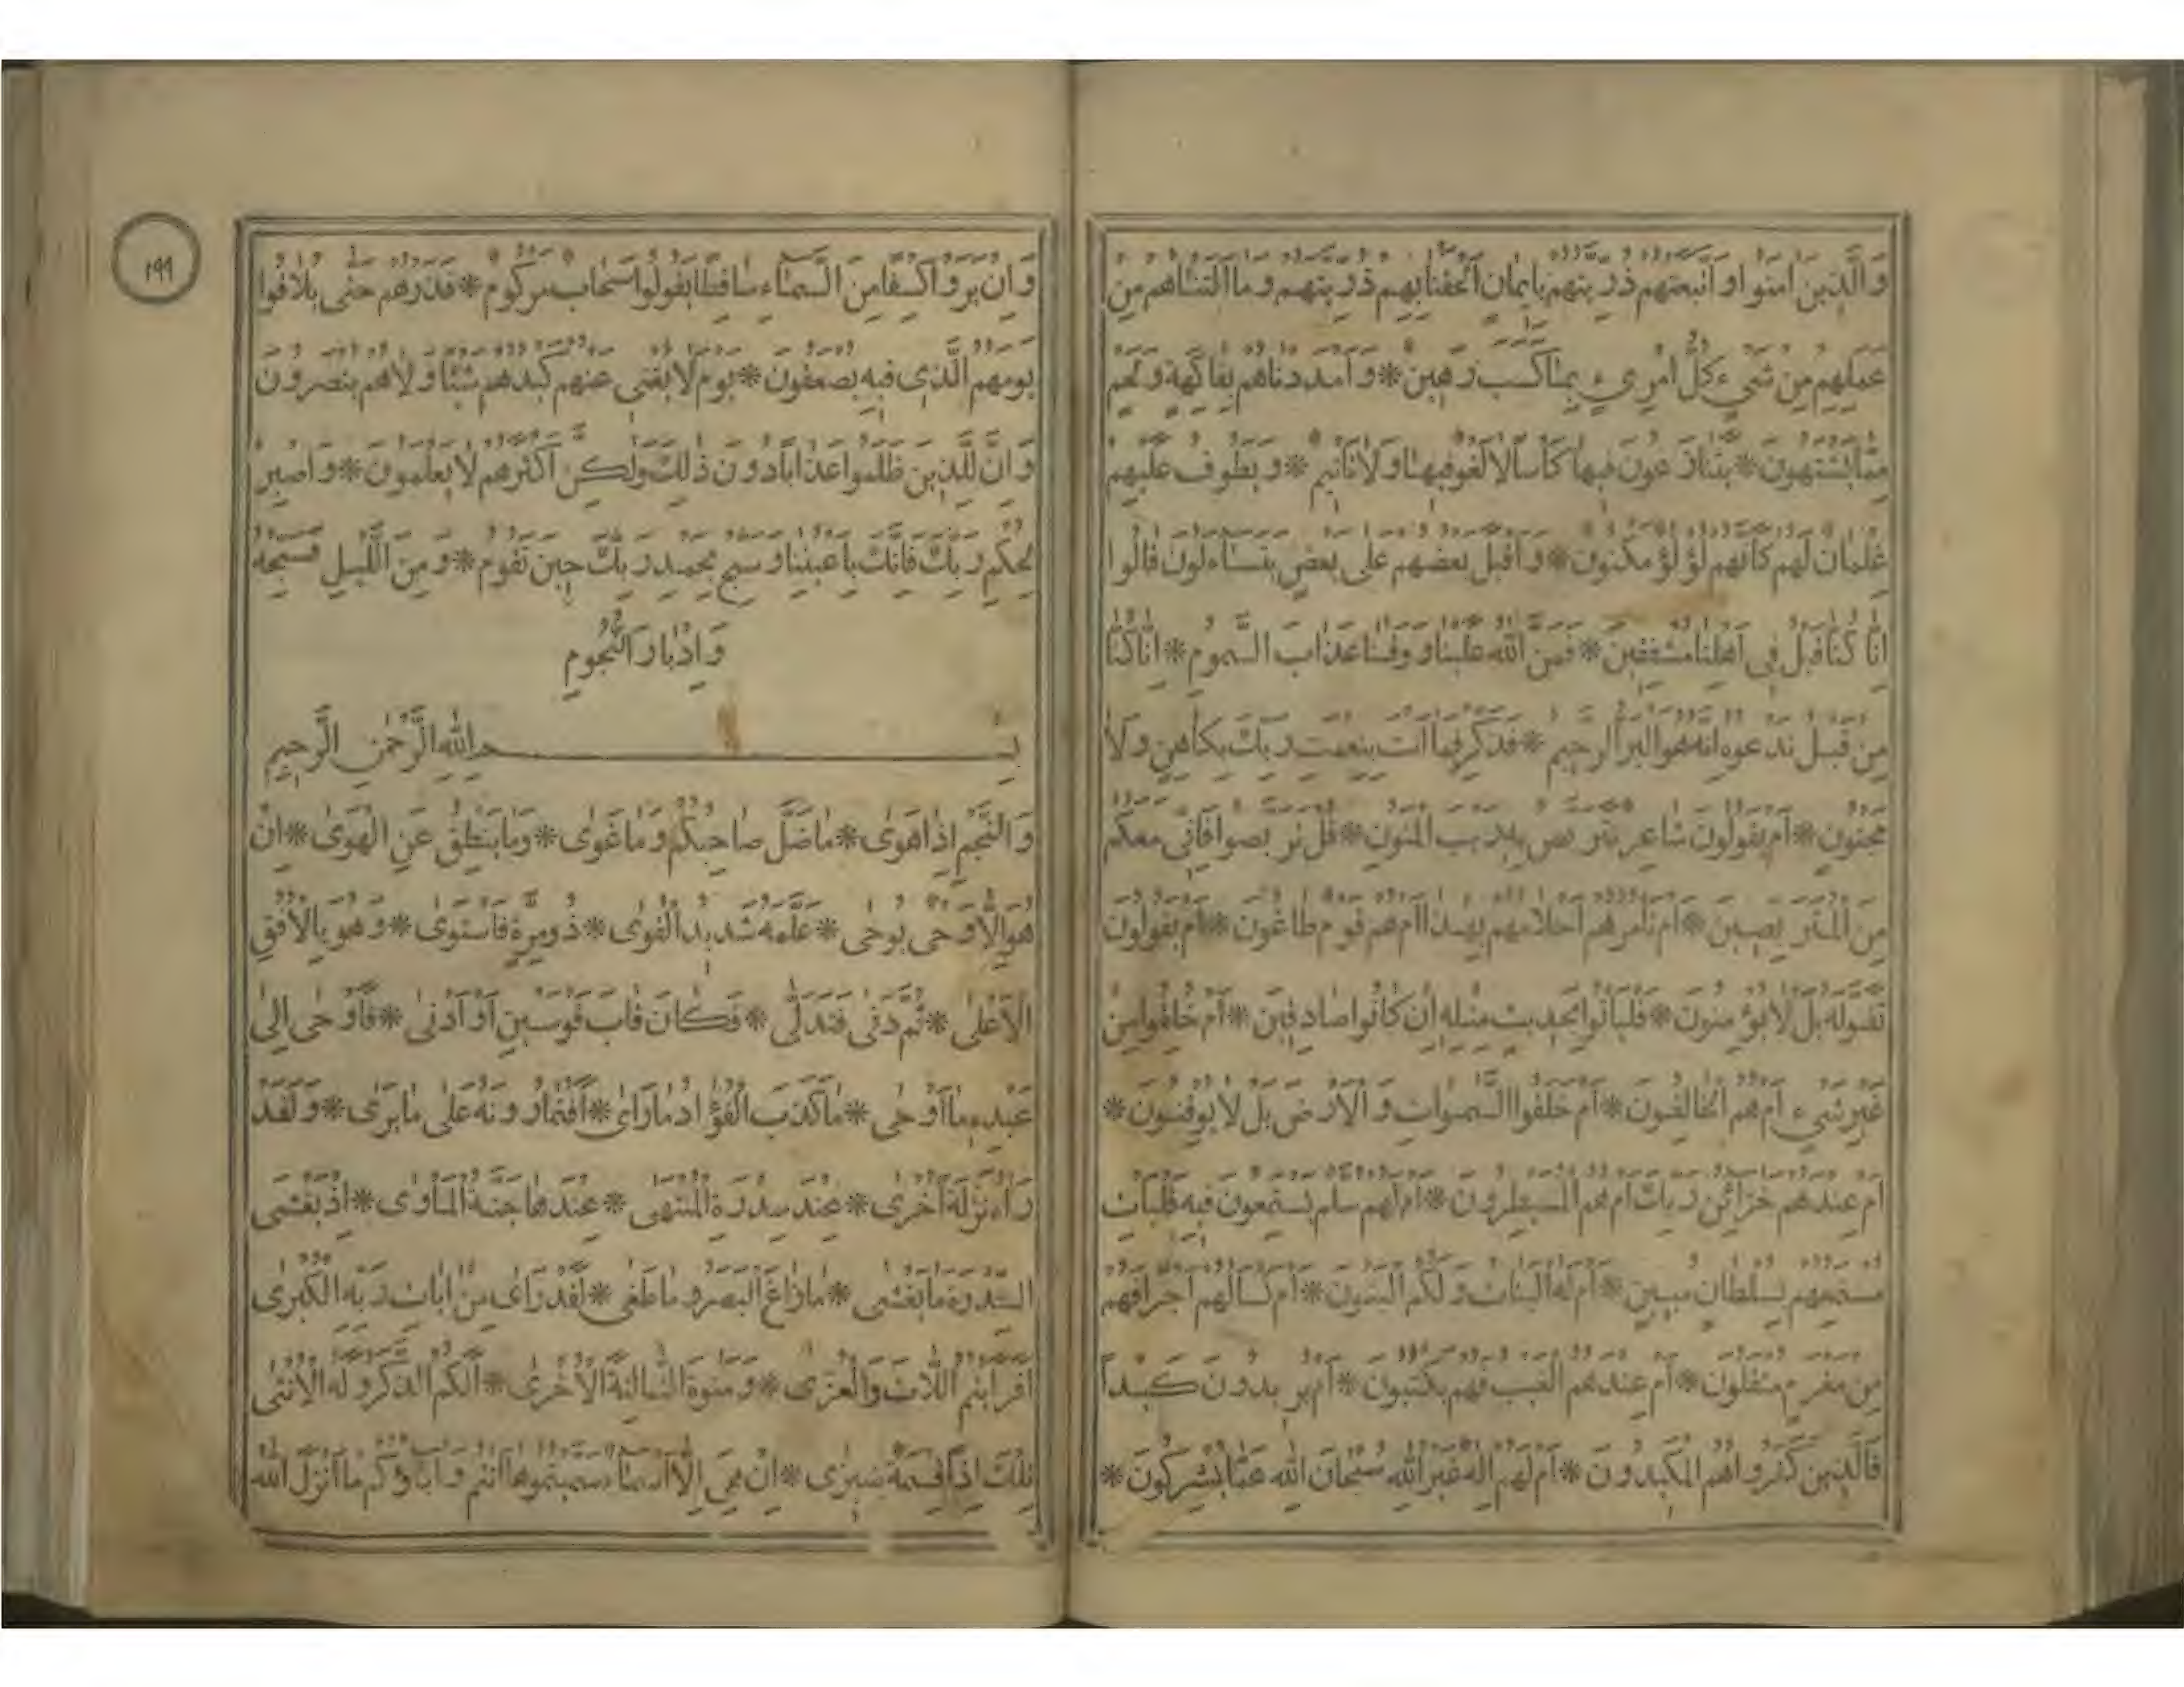 وَالَّذِينَ اٰمَنُوا وَاتَّبَعَتْهُمْ ذُرِّيَّتُهُمْ بِاِيمَانٍ اَلْحَقْنَا بِهِمْ ذُرِّيَّتَهُمْ وَمَا اَلَتْنَاهُمْ مِنْ
عَمَلِهِمْ مِنْ شَيْءٍ كُلُّ امْرِيءٍ بِمَا كَسَبَ رَهِينٌ * وَاَمْدَدْنَاهُمْ بِفَاكِهَةٍ وَلَحْمٍ
مِمَّا يَشْتَهُونَ * يَتَنَازَعُونَ فِيهَا كَأْسًا لَا لَغْوٌ فِيهَا وَلَا تَأْثِيمٌ * وَيَطُوفُ عَلَيْهِمْ
غِلْمَانٌ لَهُمْ كَاَنَّهُمْ لُؤْلُؤٌ مَكْنُونٌ * وَاَقْبَلَ بَعْضُهُمْ عَلٰى بَعْضٍ يَتَسَاءَلُونَ قَالُوا
اِنَّا كُنَّا قَبْلُ فِي اَهْلِنَا مُشْفِقِينَ * فَمَنَّ اللّٰهُ عَلَيْنَا وَوَقٰنَا عَذَابَ السَّمُومِ * اِنَّا كُنَّا
مِنْ قَبْلُ نَدْعُوهُ اِنَّهُ هُوَ الْبَرُّ الرَّحِيمُ * فَذَكِّرْ فَمَا اَنْتَ بِنِعْمَتِ رَبِّكَ بِكَاهِنٍ وَلَا
مَجْنُونٍ * اَمْ يَقُولُونَ شَاعِرٌ نَتَرَبَّصُ بِهِ رَيْبَ الْمَنُونِ * قُلْ تَرَبَّصُوا فَاِنِّي مَعَكُمْ
مِنَ الْمُتَرَبِّصِينَ * اَمْ تَأْمُرُهُمْ اَحْلَامُهُمْ بِهٰذَا اَمْ هُمْ قَوْمٌ طَاغُونَ * اَمْ يَقُولُونَ
تَقَوَّلَهُ بَلْ لَا يُؤْمِنُونَ * فَلْيَأْتُوا بِحَدِيثٍ مِثْلِهِ اِنْ كَانُوا صَادِقِينَ * اَمْ خُلِقُوا مِنْ
غَيْرِ شَيْءٍ اَمْ هُمُ الْخَالِقُونَ * اَمْ خَلَقُوا السَّمٰوَاتِ وَالْاَرْضَ بَلْ لَا يُوقِنُونَ *
اَمْ عِنْدَهُمْ خَزَائِنُ رَبِّكَ اَمْ هُمُ الْمُسَيْطِرُونَ * اَمْ لَهُمْ سُلَّمٌ يَسْتَمِعُونَ فِيهِ فَلْيَأْتِ
مُسْتَمِعُهُمْ بِسُلْطَانٍ مُبِينٍ * اَمْ لَهُ الْبَنَاتُ وَلَكُمُ الْبَنُونَ * اَمْ تَسْأَلُهُمْ اَجْرًا فَهُمْ
مِنْ مَغْرَمٍ مُثْقَلُونَ * اَمْ عِنْدَهُمُ الْغَيْبُ فَهُمْ يَكْتُبُونَ * اَمْ يُرِيدُونَ كَيْدًا
فَالَّذِينَ كَفَرُوا هُمُ الْمَكِيدُونَ * اَمْ لَهُمْ اِلٰهٌ غَيْرُ اللّٰهِ سُبْحَانَ اللّٰهِ عَمَّا يُشْرِكُونَ *
١٩٩
وَاِنْ يَرَوْا كِسْفًا مِنَ السَّمَاءِ سَاقِطًا يَقُولُوا سَحَابٌ مَرْكُومٌ * فَذَرْهُمْ حَتّٰى يُلَاقُوا
يَوْمَهُمُ الَّذِي فِيهِ يُصْعَقُونَ * يَوْمَ لَا يُغْنِي عَنْهُمْ كَيْدُهُمْ شَيْئًا وَلَا هُمْ يُنْصَرُونَ
وَاِنَّ لِلَّذِينَ ظَلَمُوا عَذَابًا دُونَ ذٰلِكَ وَلٰكِنَّ اَكْثَرَهُمْ لَا يَعْلَمُونَ * وَاصْبِرْ
لِحُكْمِ رَبِّكَ فَاِنَّكَ بِاَعْيُنِنَا وَسَبِّحْ بِحَمْدِ رَبِّكَ حِينَ تَقُومُ * وَمِنَ اللَّيْلِ فَسَبِّحْهُ
وَاِدْبَارَ النُّجُومِ
بِسْمِ اللّٰهِ الرَّحْمٰنِ الرَّحِيمِ
وَالنَّجْمِ اِذَا هَوٰى * مَا ضَلَّ صَاحِبُكُمْ وَمَا غَوٰى * وَمَا يَنْطِقُ عَنِ الْهَوٰى * اِنْ
هُوَ اِلَّا وَحْيٌ يُوحٰى * عَلَّمَهُ شَدِيدُ الْقُوٰى * ذُو مِرَّةٍ فَاسْتَوٰى * وَهُوَ بِالْاُفُقِ
الْاَعْلٰى * ثُمَّ دَنٰى فَتَدَلّٰى * فَكَانَ قَابَ قَوْسَيْنِ اَوْ اَدْنٰى * فَاَوْحٰى اِلٰى
عَبْدِهِ مَا اَوْحٰى * مَا كَذَبَ الْفُؤَادُ مَا رَاٰى * اَفَتُمَارُونَهُ عَلٰى مَا يَرٰى * وَلَقَدْ
رَاٰهُ نَزْلَةً اُخْرٰى * عِنْدَ سِدْرَةِ الْمُنْتَهٰى * عِنْدَهَا جَنَّةُ الْمَأْوٰى * اِذْ يَغْشَى
السِّدْرَةَ مَا يَغْشٰى * مَا زَاغَ الْبَصَرُ وَمَا طَغٰى * لَقَدْ رَاٰى مِنْ اٰيَاتِ رَبِّهِ الْكُبْرٰى
اَفَرَاَيْتُمُ اللَّاتَ وَالْعُزّٰى * وَمَنٰوةَ الثَّالِثَةَ الْاُخْرٰى * اَلَكُمُ الذَّكَرُ وَلَهُ الْاُنْثٰى
تِلْكَ اِذًا قِسْمَةٌ ضِيزٰى * اِنْ هِيَ اِلَّا اَسْمَاءٌ سَمَّيْتُمُوهَا اَنْتُمْ وَاٰبَاؤُكُمْ مَا اَنْزَلَ اللّٰهُ